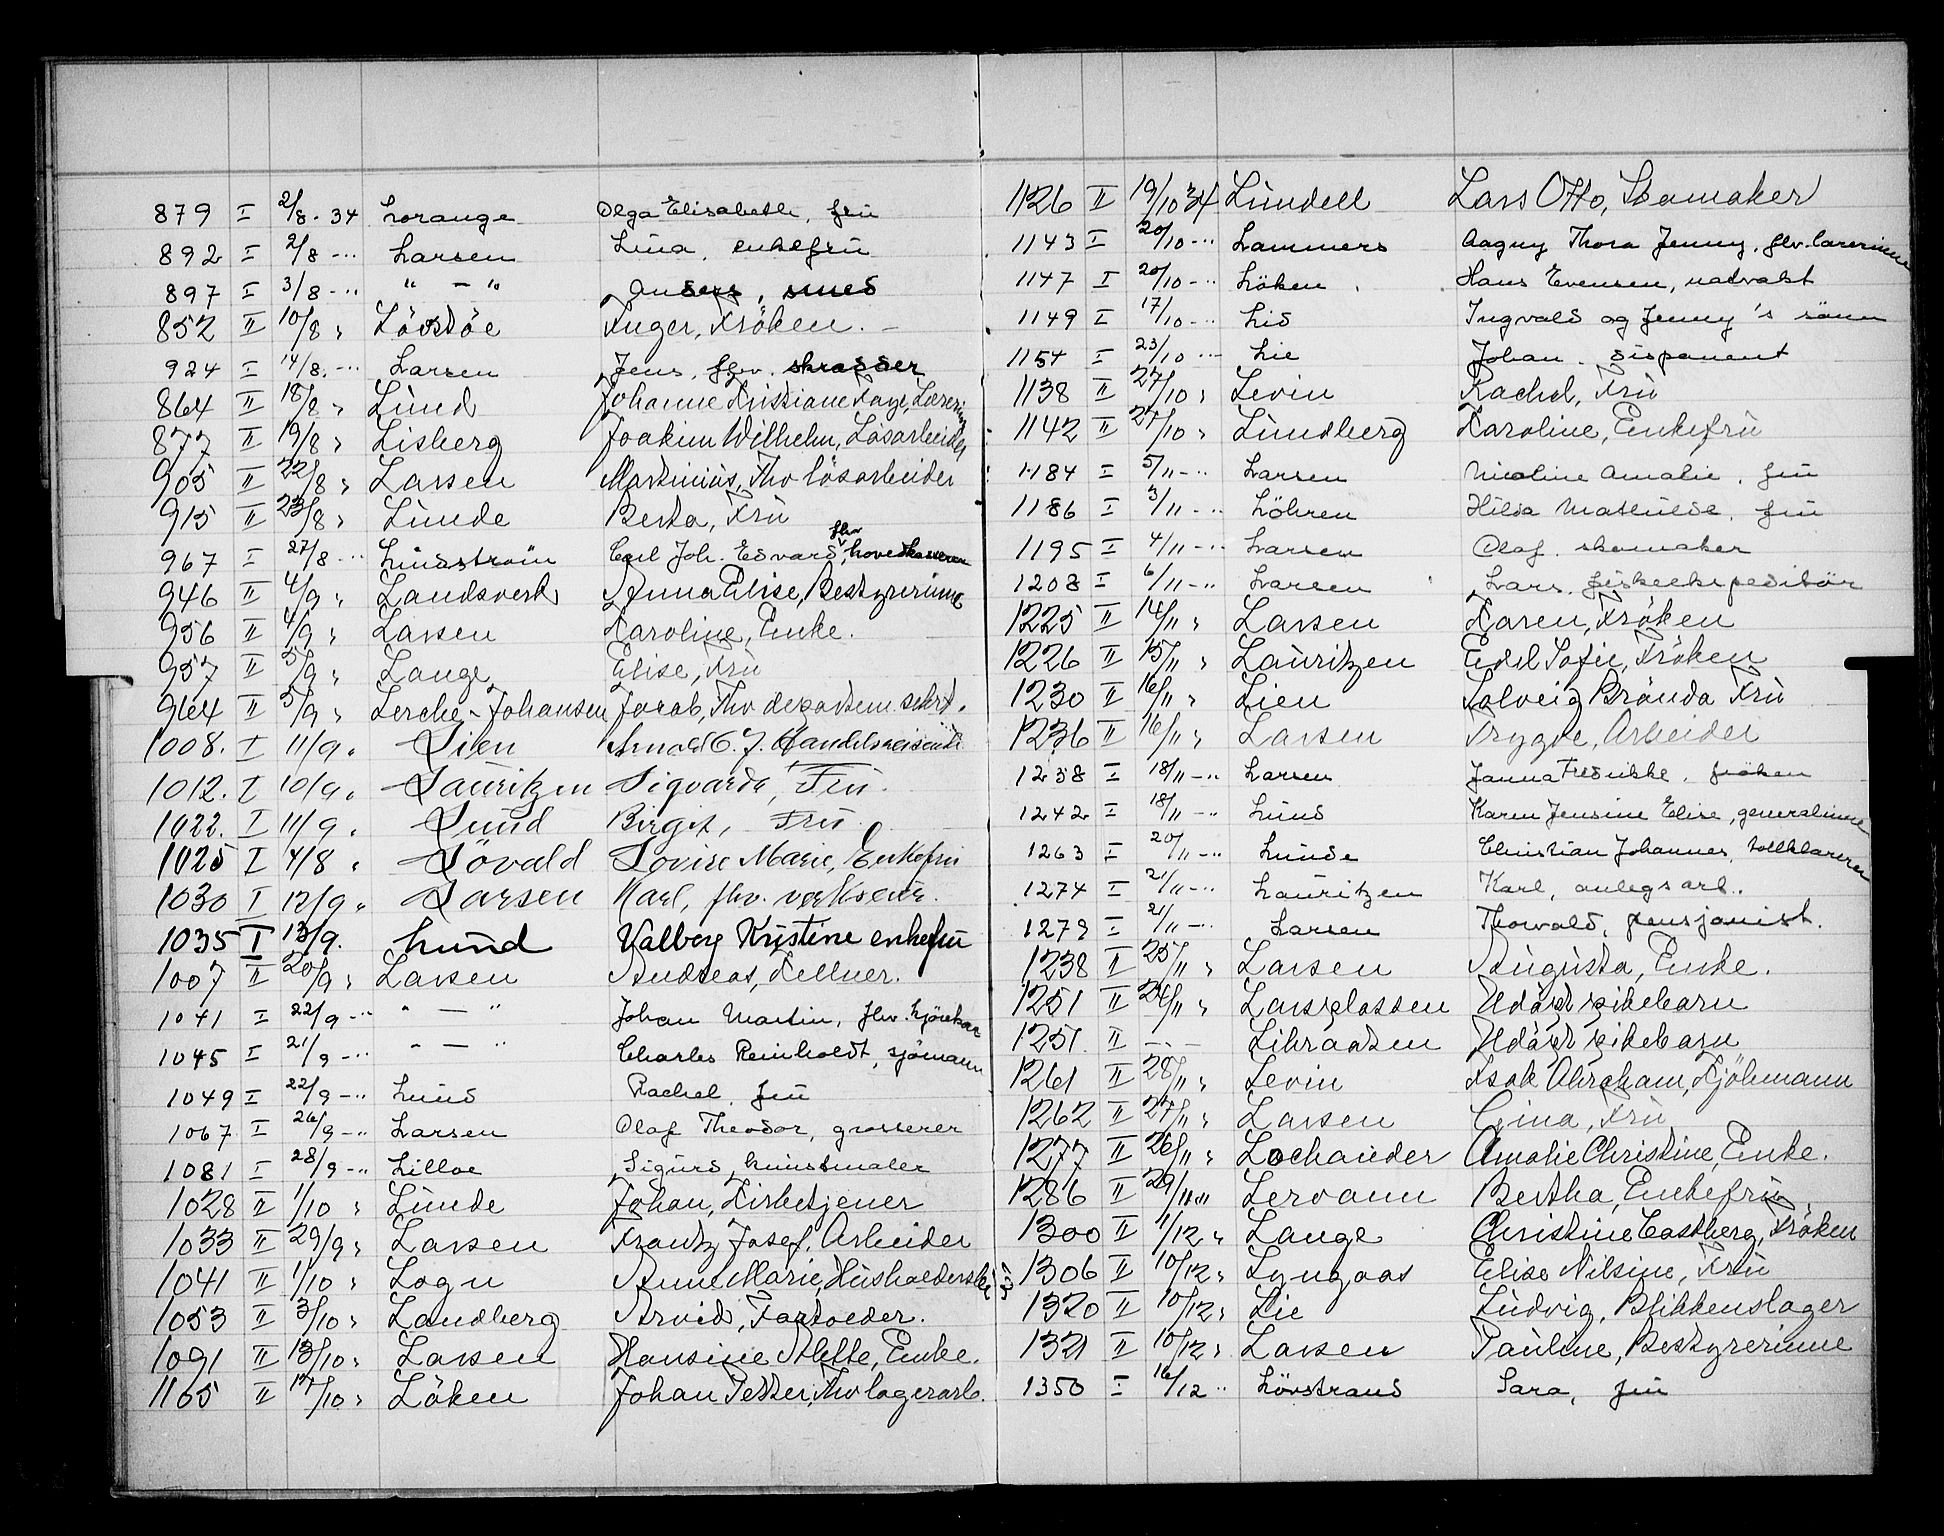 879 I 2/8-34 Lorange Olga Elisabeth, fru
892 I 2/8-" Larsen Lina, enkefru
897 I 3/8-" " - " Anders, smed
852 II 10/8 " Lövdöe Inger, Fröken.
924 I 14/8-" Larsen Jens, fhv. skrædder
864 II 18/8 " Lund Johanne Kristiane Faye, Lærerinne
877 II 19/8 " Lisberg Joakim Wilhelm, Lösarbeider
905 II 22/8 " Larsen Martinius, Fhv lösarbeider
915 II 23/8 " Lunde Berta, Fru
967 I 27/8-" Lindström Carl Joh. Edvard, fhv hovedkasserer
946 II 4/9 " Landsverk Anna Elise, Bestyrerinne
956 II 4/9 " Larsen Karoline, Enke.
957 II 5/9 " Lange Elise, Fru
964 II 5/9 " Lerche-Johansen Jacob, Fhv departem. sekret.
1008. I 11/9 " Lien Arnold C. J. Handelsreisende
1012. I 10/9 " Lauritzen Sigvarda, Fru.
1022. I 11/9 " Lund Birgit, Fru.
1025 I 4/8 " Lövald Lovise Marie, Enkefru
1030 I 12/9 " Larsen Karl, fhv. verkseier.
1035 I 13/9. Lund Valborg Kristine enkefru
1007 II 20/9 " Larsen Andreas, Kellner.
1041 I 22/9-" " - " Johan Martin, fhv. kjörekar
1045 I 21/9-" " - " Charles Reinholdt, sjömann
1049 I 22/9-" Lund Rachel, fru
1067 I 26/9-" Larsen Olaf Theodor, grosserer
1081 I 28/9-" Lilloe Sigurd, kunstmaler
1028 II 1/10 " Lunde Johan, Kirketjener
1033 II 29/9 " Larsen Frantz Josef, Arbeider
1041 II 1/10 " Logn Anne Marie, Husholderske
1053 II 3/10 " Landberg Arvid,
1091 II 13/10 " Larsen Hansine Alette, Enke.
1105 II 17/10 " Löken Johan Petter, Fhv lagerarb.
1126 II 19/10 34 Lundell Lars Otto, Skomaker
1143 I 20/10-" Lammers Aagny Thora Jenny, fhv. lærerinne
1147 I 20/10-" Löken Hans Evensen, nattvakt
1149 I 17/10-" Lid Ingvald og Jenny's sönn
1154 I 23/10-" Lie Johan, disponent
1138 II 27/10 " Levin Rachel, Fru
1142 II 27/10 " Lundberg Karoline, Enkefru
1184 I 5/11-" Larsen Nicoline Amalie, fru
1186 I 3/11-" Löhren Hilda Mathilde, fru
1195 I 4/11-" Larsen Olaf, skomaker
1208 I 6/11-" Larsen Lars, fiskeekspeditör
1225 II 14/11 " Larsen Karen, Fröken
1226 II 15/11 " Lauritzen Edel Sofie, Fröken
1230 II 16/11 " Lien Solveig Brånda Fru
1236 II 16/11 " Larsen Trygve, Arbeider
1238 I 18/11-" Larsen Janna Fredrikke, fröken
1242 I 18/11-" Lund Karen Jensine Elise, generalinne
1263 I 20/11-" Lunde Christian Johannes, tollklarerer
1274 I 21/11-" Lauritzen Karl, anlegsarb.
1279 I 21/11-" Larsen Thorvald, pensjonist.
1238 II 25/11 " Larsen Augusta, Enke.
1251 II 24/11 " Udöpt pikebarn
1251. II -"- Udöpt pikebarn
1261 II 28/11 " Levin Isak Abraham, Kjöbmann
1262 II 27/11 " Larsen Gina, Fru
1277 II 26/11 " Lochander Amalie Christine, Enke.
1286 II 29/11 " Lervann Bertha, Enkefru
1300 II 1/12 " Lange Christine Castberg, Fröken
1306 II 10/12 " Lyngaas Elise Nilsine, Fru
1320 II 10/12 " Lie Ludvig, Blikkenslager
1321 II 10/12 " Larsen Pauline, Bestyrerinne
1350 I 16/12 " Lövstrand Sara, fru